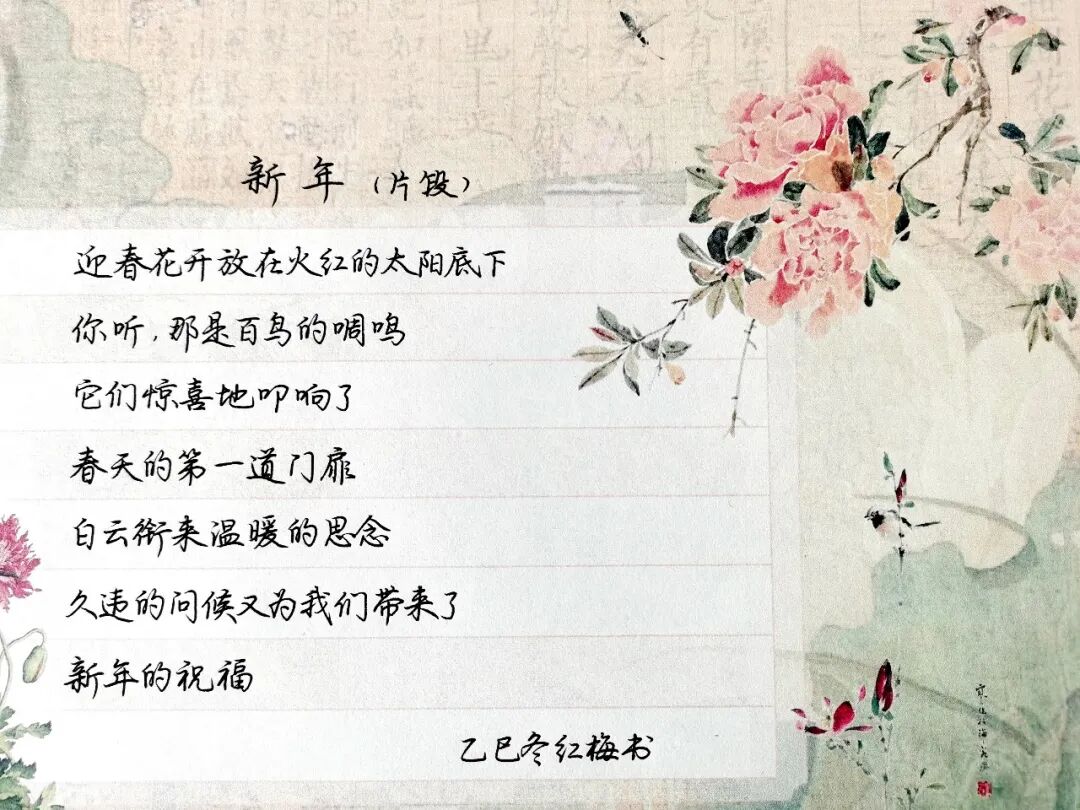 新年（片段）
迎春花开放在火红的太阳底下
你听，那是百鸟的啁鸣
它们惊喜地叩响了
春天的第一道门扉
白云衔来温暖的思念
久违的问候又为我们带来了
新年的祝福
乙巳冬红梅书